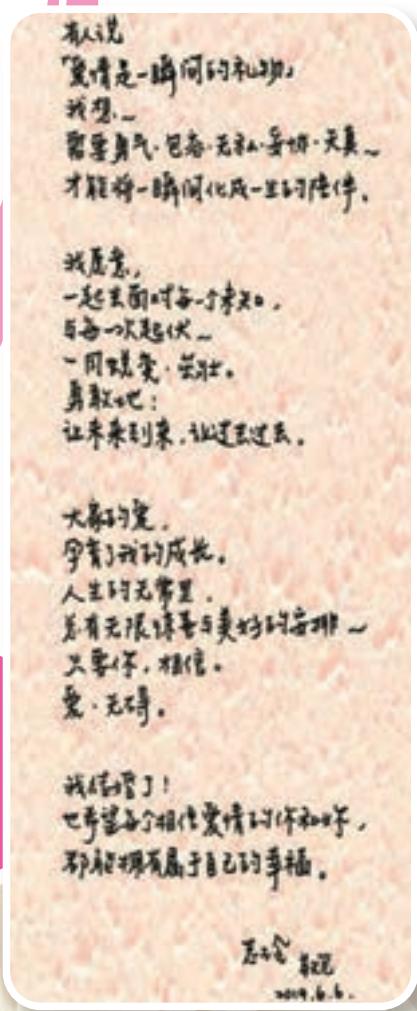 有人说
「爱情是一瞬间的礼物」
我想～
需要勇气·包容·无私·妥协·天真～
才能将一瞬间化成一生的陪伴。
我愿意，
一起去面对每一个未知，
与每一次起伏～
一同蜕变·茁壮。
勇敢地：
让未来到来，让过去过去。
大家的爱，
孕育了我的成长。
人生的无常里，
总有无限惊喜与美好的安排～
只要你，相信。
爱·无碍。
我结婚了！
也希望每个相信爱情的你和妳，
都能拥有属于自己的幸福。
2019.6.6.